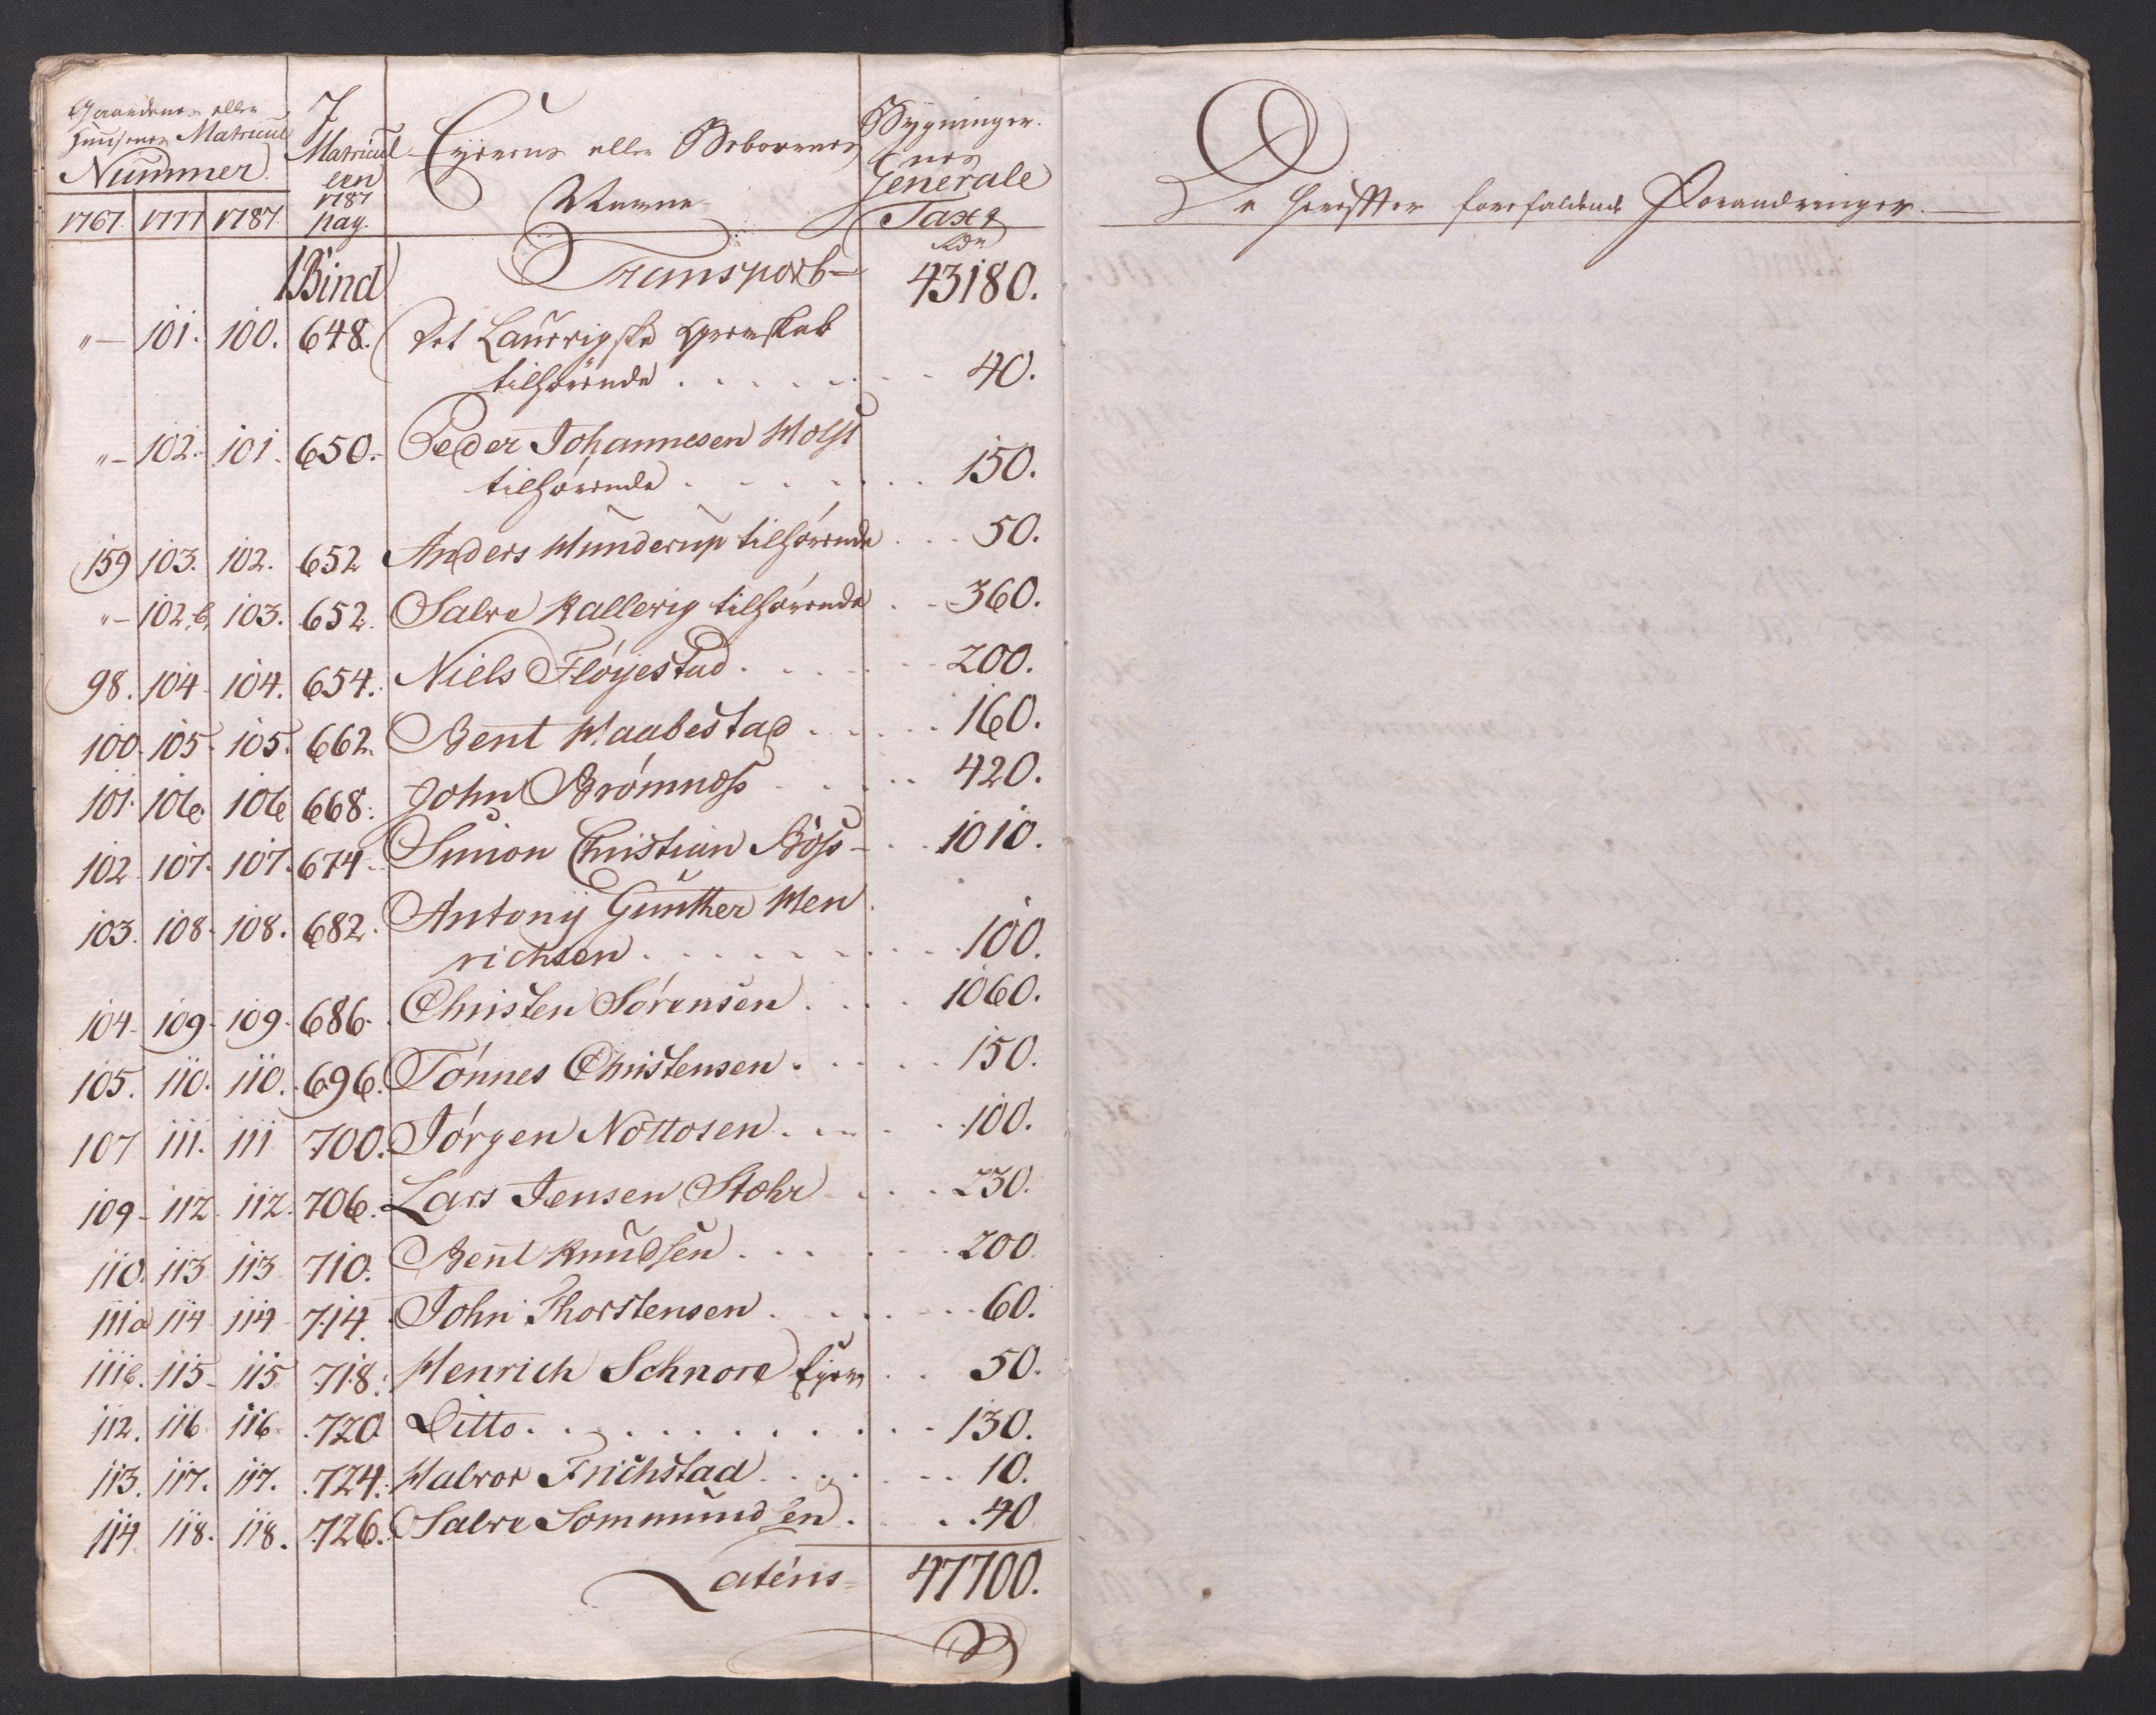 Gaardenes eller Huusenes Matricul Nummer
1767. 1777 1787.
7 Matricul een 1787 pag.
Eyerens eller Beboernes Navne
Bygninger nes Generale Taxt
Rdr
1 Bind Transport 43180.
"— 101. 100. 648. Det Laurvigske Grevskab
tilhörende . . . . . . . 40.
"— 102. 101. 650. Peder Johannesen Holst
tilhörende . . . . . . . 150.
159 103. 102. 652 Anders Hunderup tilhörende . . . 50.
"— 102.b. 103. 652. Salve Kallevig tilhörende . . 360.
98. 104 104. 654. Niels Flöyestad . . . . . 200.
100. 105. 105. 662. Bent Haabestad . . . . . 160.
101. 106. 106 668. John Brömnæss . . . . . 420.
102. 107. 107. 674. Simon Christian Böss . . . 1010.
103. 108. 108. 682. Antony Günther Hen
richsen . . . . . . . . 100.
104. 109. 109. 686. Christen Sörensen . . . 1060.
105. 110. 110. 696. Tönnes Christensen . . . . 150.
107 111. 111 700. Jörgen Nottosen . . . . . 100.
109. 112. 112. 706. Lars Jensen Stæhr . . . 230.
110. 113 113 710. Bent Knudsen . . . . . 200
111a 114 114 714. John Thorstensen . . . . . 60.
111b. 115 115 718. Henrich Schnore Eyer . . 50.
112. 116 116 720 Ditto . . . . . . . . . . 130.
113. 117. 117. 724. Halvor Frichstad . . . . . 10.
114. 118. 118. 726. Salve Sommundsen . . . 40
Lateris 47700.
De herefter forefaldende Forandringer.